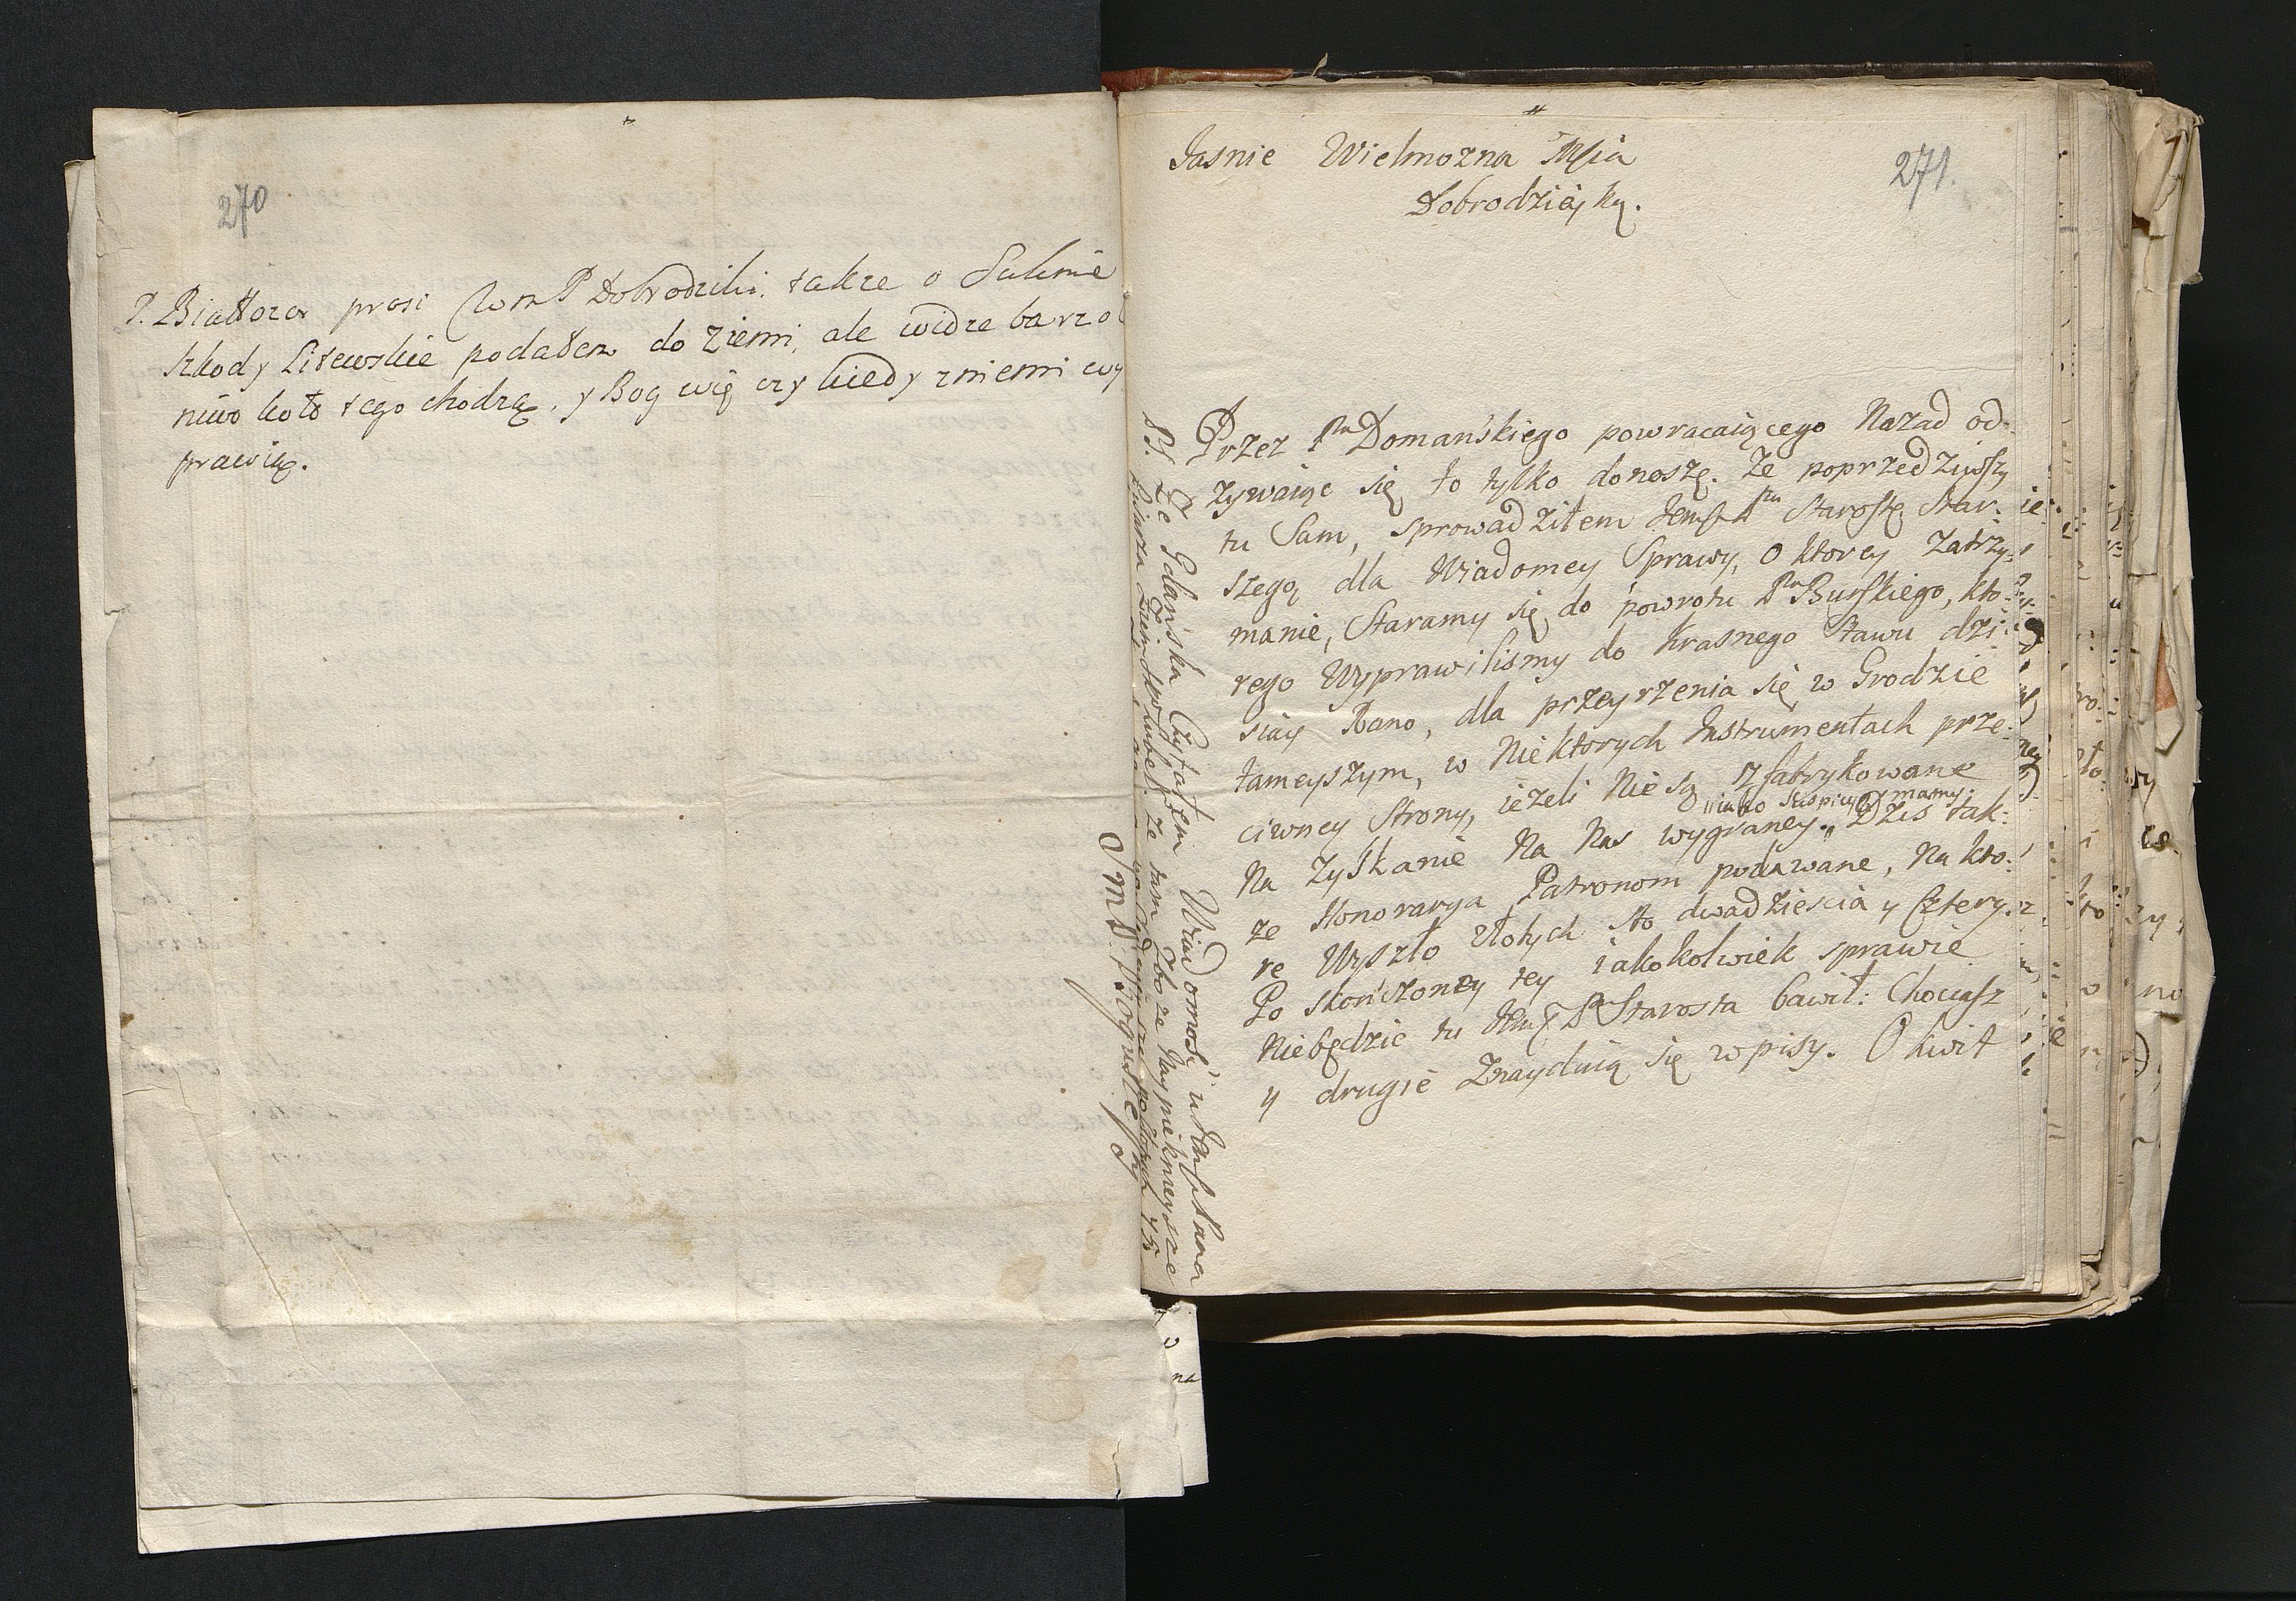 270
P. Białłozor prosi WmP Dobrodziki. także o Suknie
szkody Litewskie podałem do ziemi, ale widze barzo
niwo koło tego chodzą, y Bog wię czy kiedy zniemi wy
prawią.
271.
Jasnie Wielmozna Mścia
Dobrodzieyką.
Przez Pna Domańskiego powracaiącego Nazad od=
zywaiąc się to tylko donoszę. Że poprzedziwszy
tu Sam, sprowadziłem Jemsći Pna Starostę Star=
szego dla Wiadomey Sprawy, o ktorey zatrzy=
manie, Staramy się do powrotu Pna Burskiego, kto=
rego Wyprawilismy do Krasnego Stawu dzi=
siay Rano, dla przeyrzenia się w Grodzie
tameyszym, w Niektorych Instrumentach prze=
ciwney Strony, ieżeli Nie są zfabrykowane
"iako suspicyą mamy.
Na Zyskanie Na Nas wygraney. " Dziś tak=
ze Honorarya Patronom podawane, Na kto=
re Wyszło złotych sto dwadzieścia y Cztery.
Po skończoney tey iakokolwiek sprawie
Niebędzie tu Jemść Pn Starosta bawił: Chociasz
y drugie Znayduią się wpisy. O kwit
PS. Ze Gdańska Czytałem Wiadomość u Jemści Pana
Pisarza Ziem: że tam Zboże Naypięknieysze